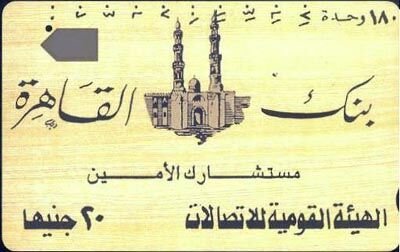 ١٨٠ وحدة
بنك القاهرة
مستشارك الأمين
الهيئة القومية للاتصالات
٢٠ جنيها